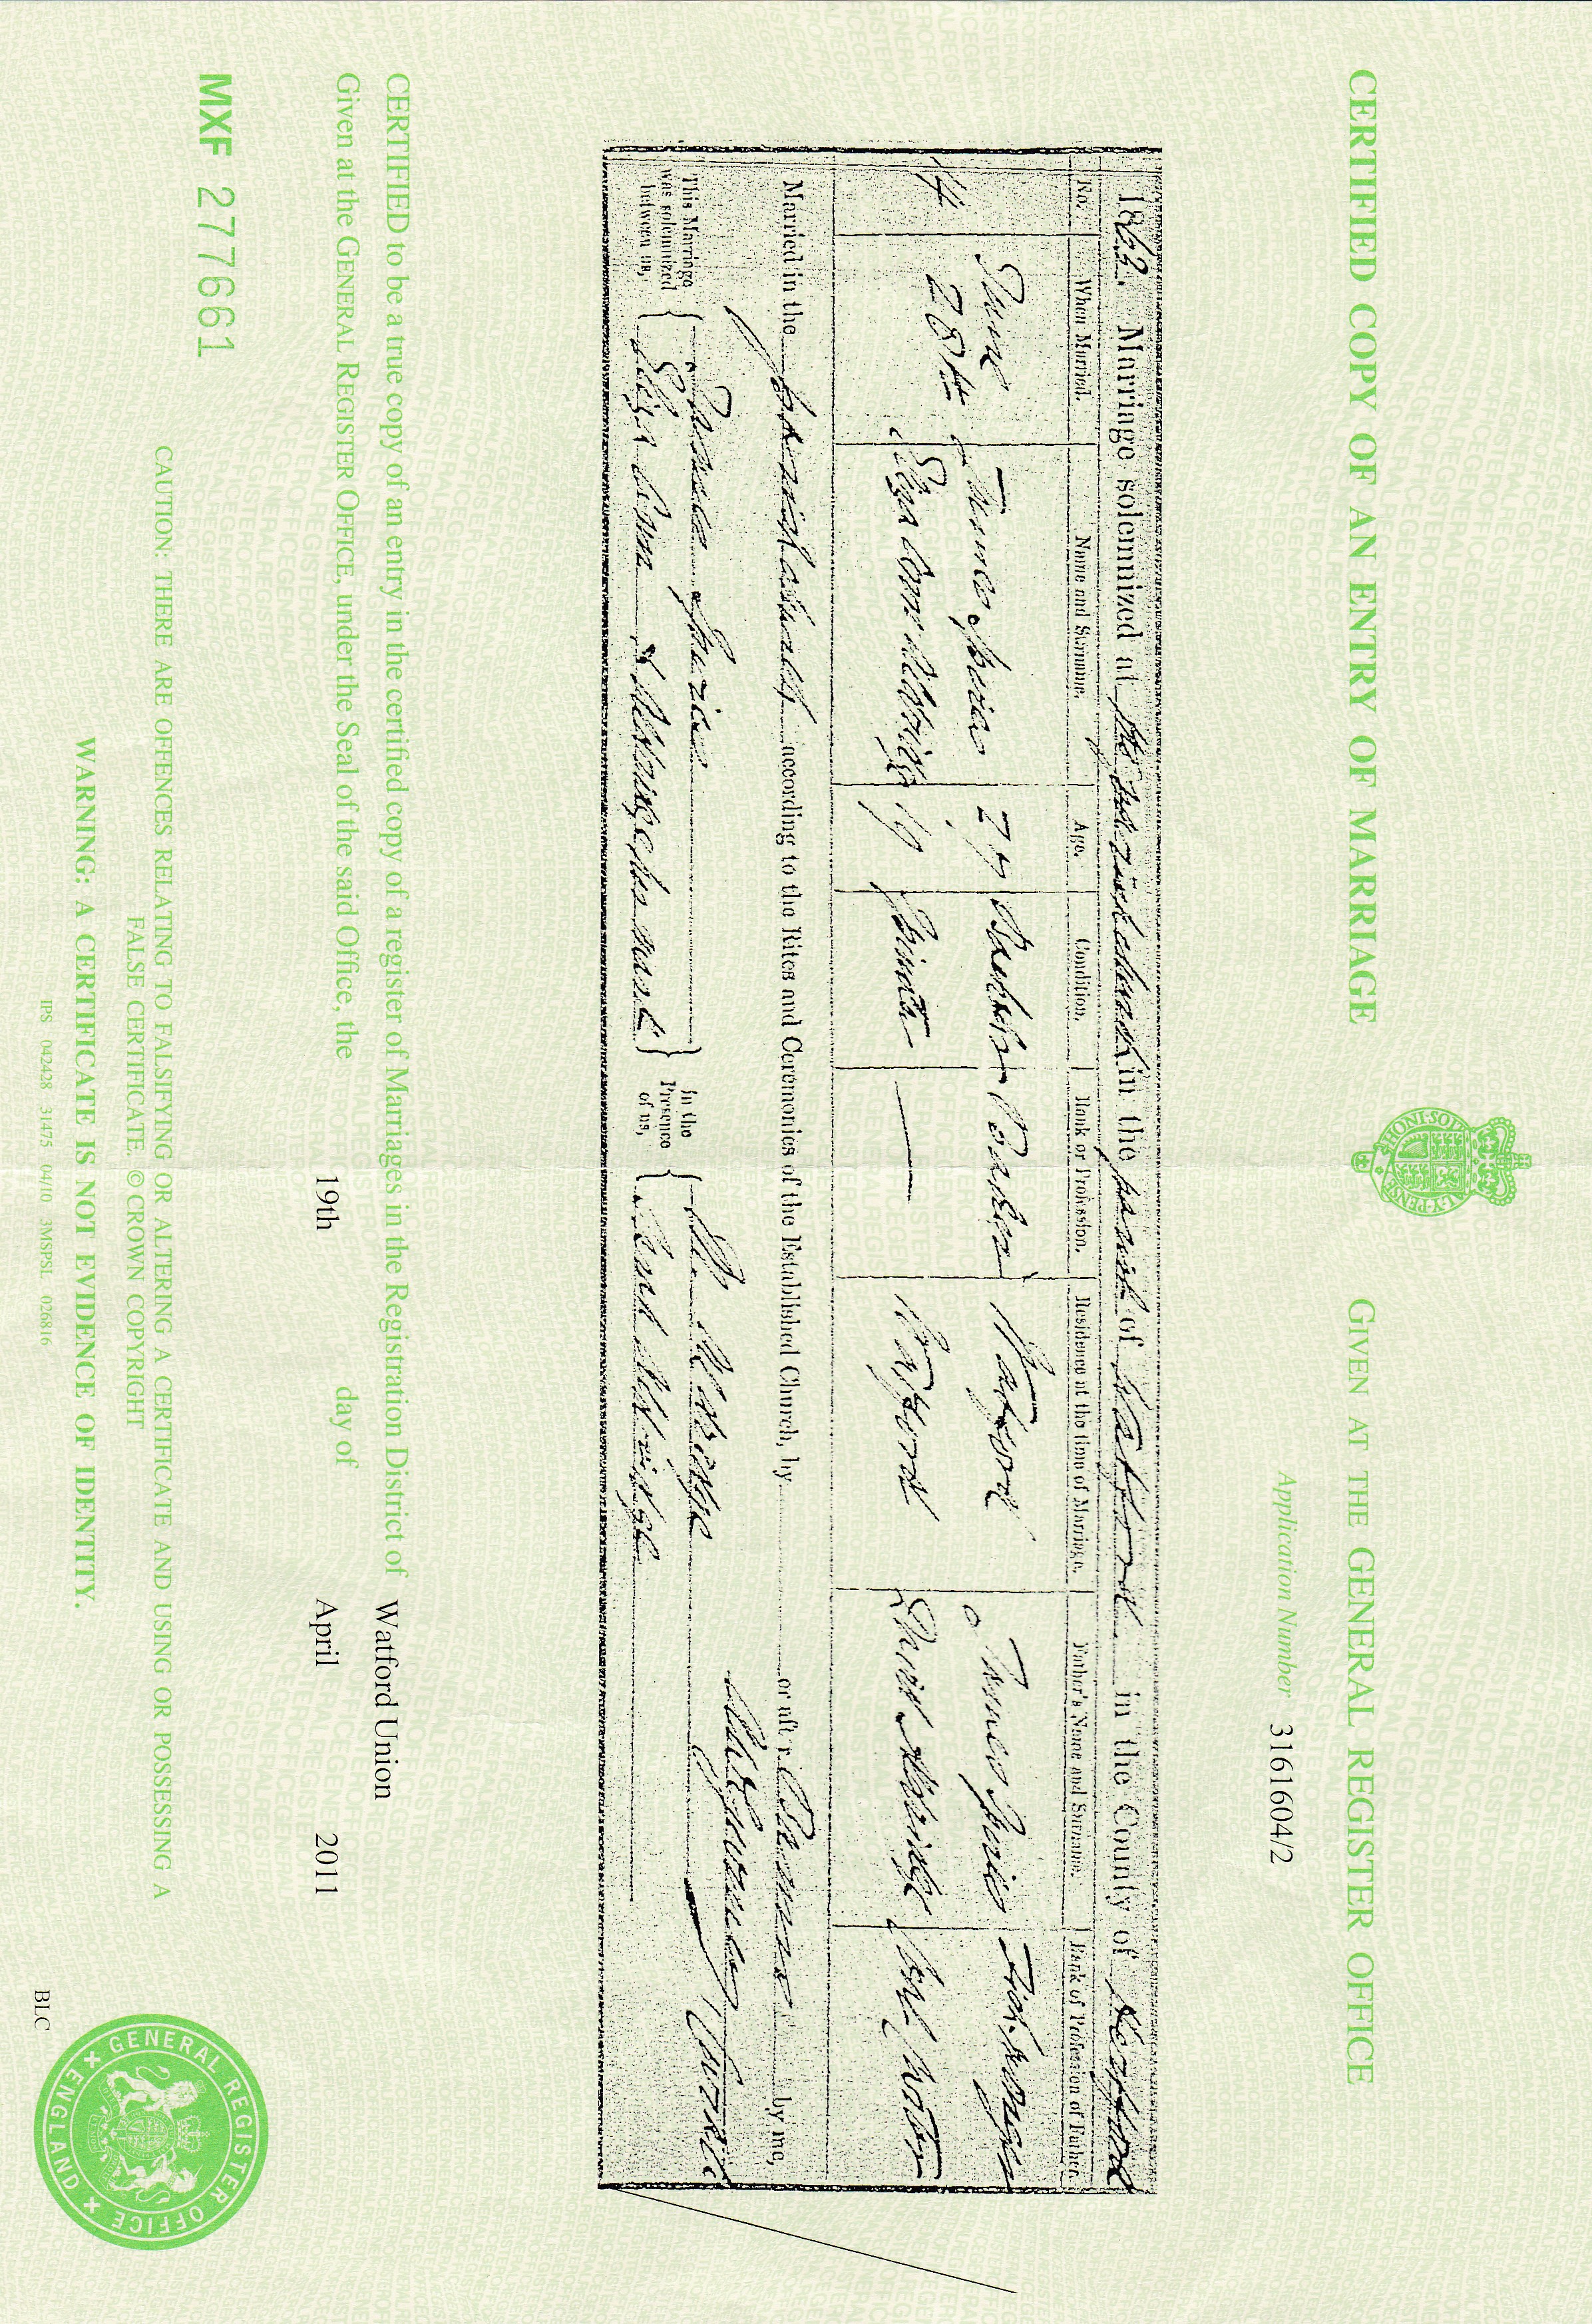 CERTIFIED COPY OF AN ENTRY OF MARRIAGE
GIVEN AT THE GENERAL REGISTER OFFICE
Application Number 3161604/2
1863. Marriage solemnized at the parish church in the parish of Watford in the County of Hertford
No. When Married. Name and Surname. Age. Condition. Rank or Profession. Residence at the time of Marriage. Father's Name and Surname. Rank of Profession of Father.
14 June 28th James Spires 27 Bachelor Baker Watford James Spires Fish-monger
Eliza Ann Aldridge 19 Spinster — Watford David Aldridge Coal Porter
Married in the parish church according to the Rites and Ceremonies of the Established Church, by or aft r Banns by me,
Curate
This Marriage was solemnized between us, James Spires
Eliza Ann x Aldridge her mark
In the Presence of us, Aldridge
Sarah Aldridge
CERTIFIED to be a true copy of an entry in the certified copy of a register of Marriages in the Registration District of Watford Union
Given at the GENERAL REGISTER OFFICE, under the Seal of the said Office, the 19th day of April 2011
MXF 277661
CAUTION: THERE ARE OFFENCES RELATING TO FALSIFYING OR ALTERING A CERTIFICATE AND USING OR POSSESSING A
FALSE CERTIFICATE. © CROWN COPYRIGHT
WARNING: A CERTIFICATE IS NOT EVIDENCE OF IDENTITY.
IPS 042428 31475 04/10 3MSPSL 026816
BLC
GENERAL REGISTER OFFICE
ENGLAND